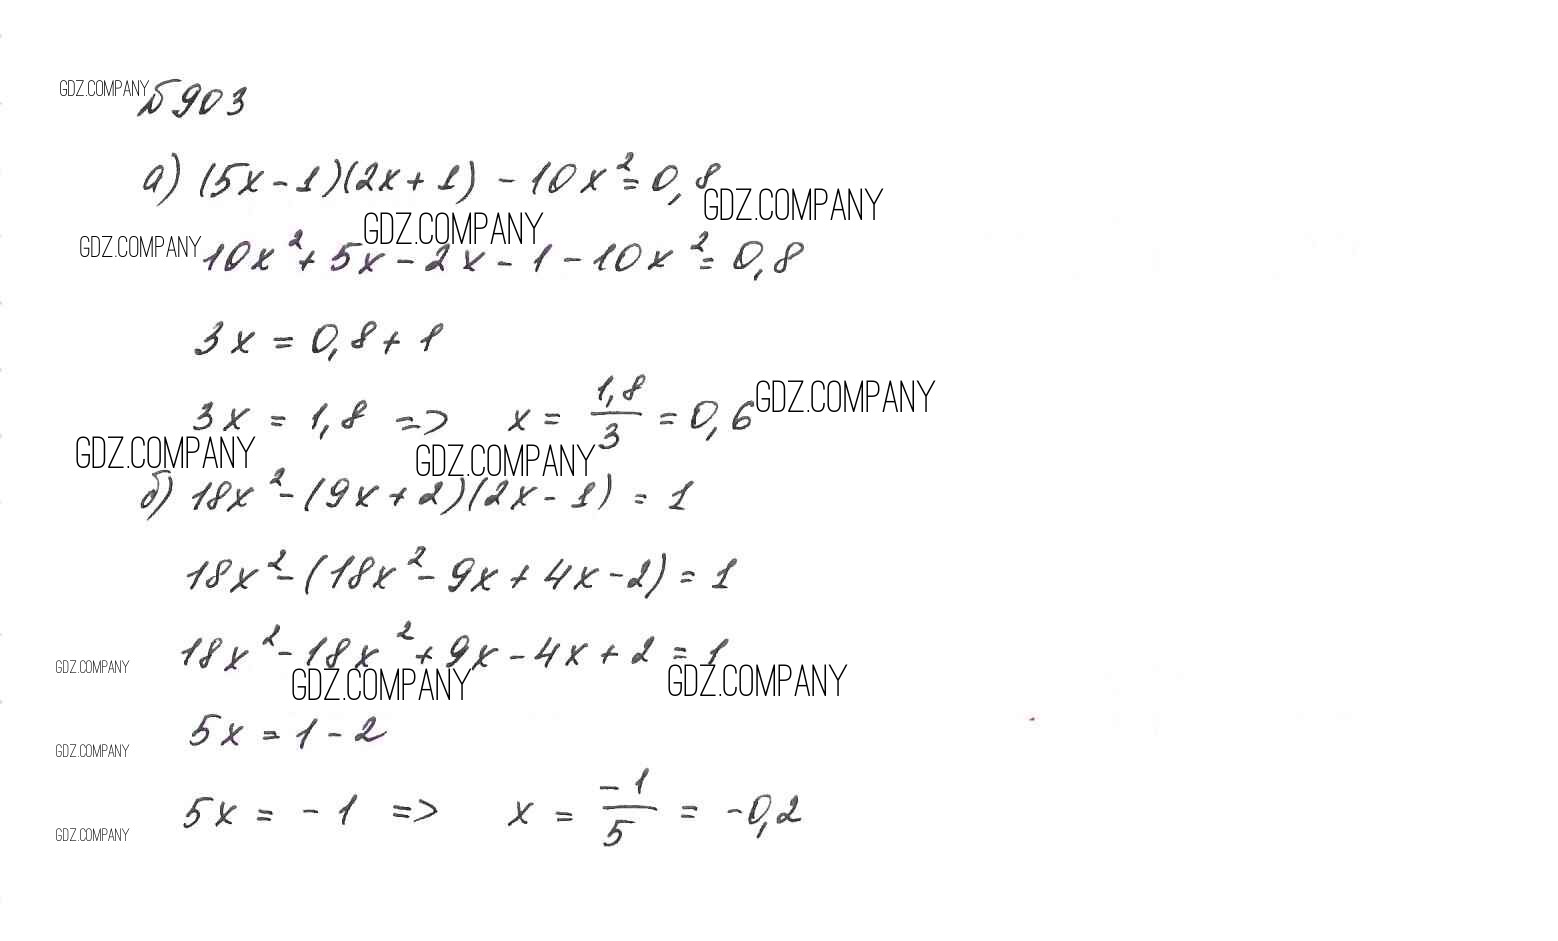 GDZ.COMPANY
№903
а) (5x-1)(2x+1) - 10x² = 0,8
GDZ.COMPANY
GDZ.COMPANY
GDZ.COMPANY
10x² + 5x - 2x - 1 - 10x² = 0,8
3x = 0,8 + 1
3x = 1,8 => x = 1,8/3 = 0,6
GDZ.COMPANY
GDZ.COMPANY
GDZ.COMPANY
б) 18x² - (9x+2)(2x-1) = 1
18x² - (18x² - 9x + 4x - 2) = 1
18x² - 18x² + 9x - 4x + 2 = 1
GDZ.COMPANY
GDZ.COMPANY
GDZ.COMPANY
5x = 1 - 2
GDZ.COMPANY
5x = -1 => x = -1/5 = -0,2
GDZ.COMPANY